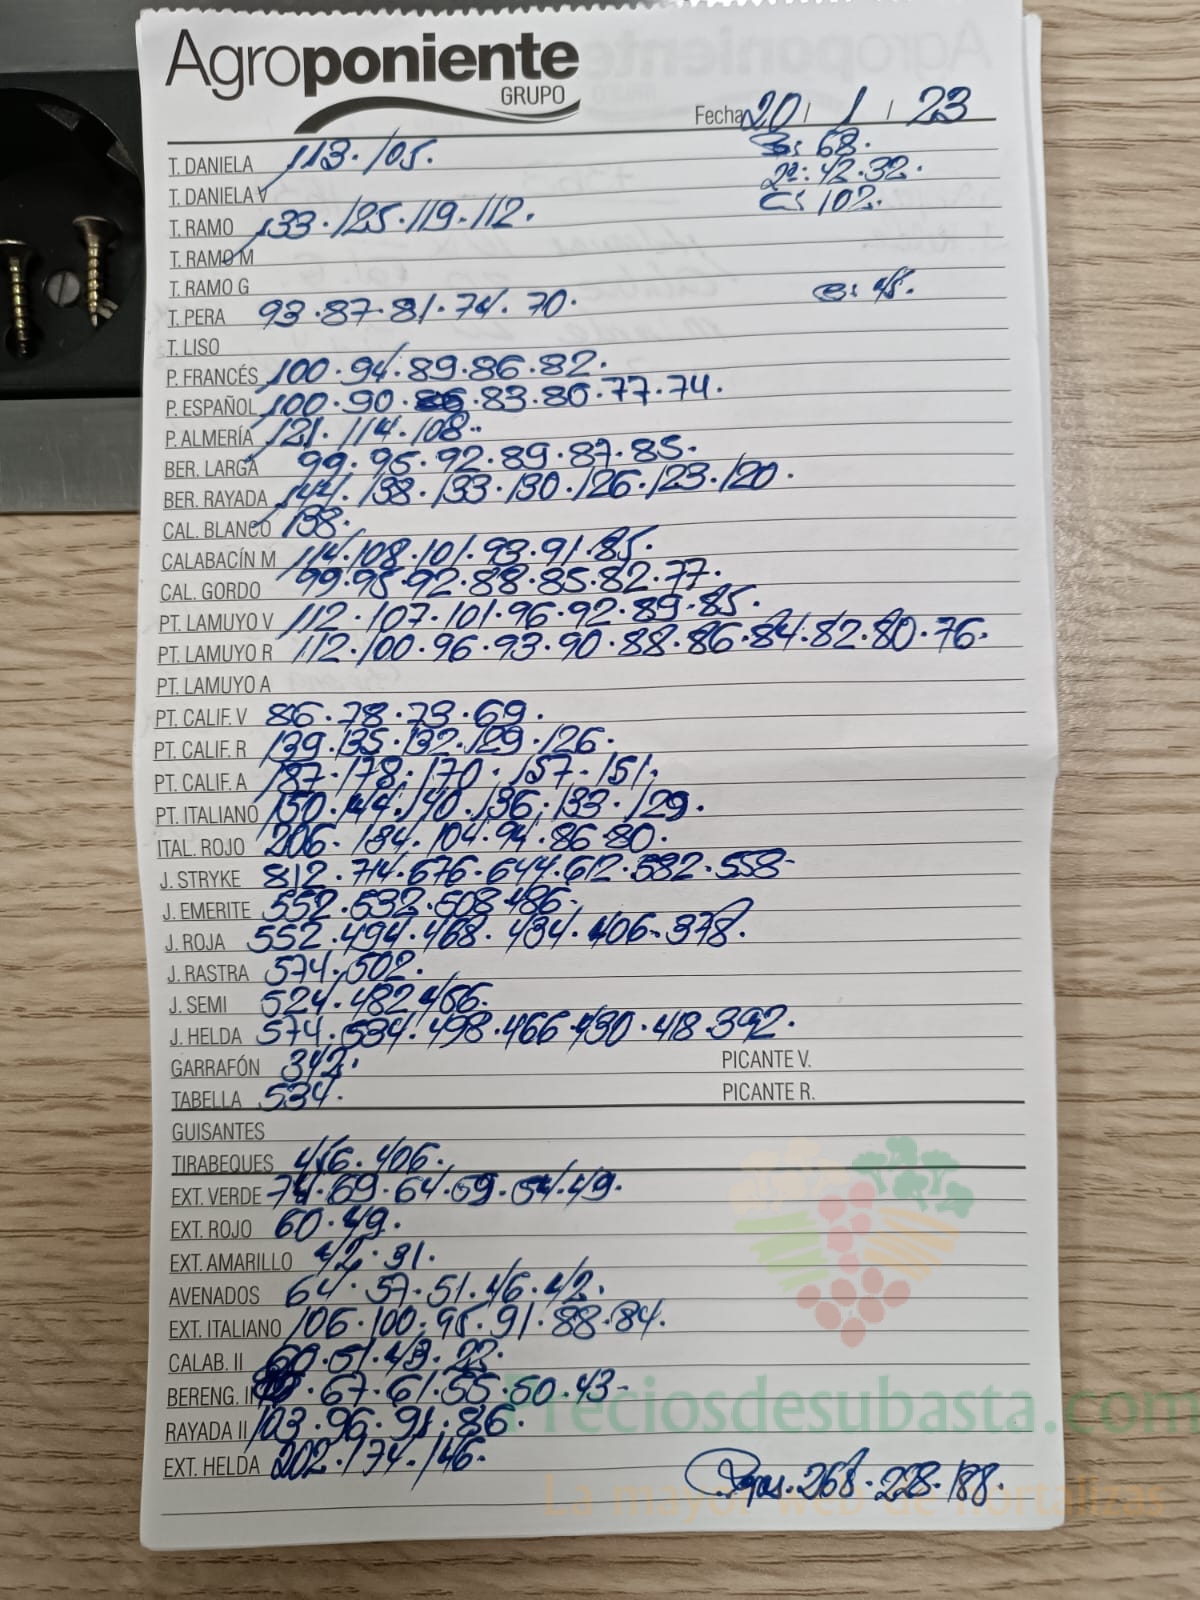 Agroponiente
GRUPO
Fecha 20 / 1 / 23
T. DANIELA 113 · 105. B: 68.
T. DANIELA V 2ª: 42 · 32.
T. RAMO 133 · 125 · 119 · 112. C: 102.
T. RAMO M
T. RAMO G
T. PERA 93 · 87 · 81 · 74 · 70. B: 45.
T. LISO
P. FRANCÉS 100 · 94 · 89 · 86 · 82.
P. ESPAÑOL 100 · 90 · 86 · 83 · 80 · 77 · 74.
P. ALMERÍA 121 · 114 · 108.
BER. LARGA 99 · 95 · 92 · 89 · 87 · 85.
BER. RAYADA 144 · 138 · 133 · 130 · 126 · 123 · 120.
CAL. BLANCO 138.
CALABACÍN M 114 · 108 · 101 · 93 · 91 · 85.
CAL. GORDO 99 · 95 · 92 · 88 · 85 · 82 · 77.
PT. LAMUYO V 112 · 107 · 101 · 96 · 92 · 89 · 85.
PT. LAMUYO R 112 · 100 · 96 · 93 · 90 · 88 · 86 · 84 · 82 · 80 · 76.
PT. LAMUYO A
PT. CALIF. V 86 · 78 · 73 · 69.
PT. CALIF. R 139 · 135 · 132 · 129 · 126.
PT. CALIF. A 187 · 178 · 170 · 157 · 151.
PT. ITALIANO 150 · 144 · 140 · 136 · 133 · 129.
ITAL. ROJO 206 · 184 · 104 · 94 · 86 · 80.
J. STRYKE 812 · 714 · 676 · 644 · 612 · 582 · 558
J. EMERITE 552 · 532 · 508 · 486
J. ROJA 552 · 494 · 468 · 434 · 406 · 378.
J. RASTRA 574 · 502.
J. SEMI 524 · 482 · 466.
J. HELDA 574 · 534 · 498 · 466 · 430 · 418 · 392.
GARRAFÓN 342. PICANTE V.
TABELLA 534. PICANTE R.
GUISANTES
TIRABEQUES 456 · 406.
EXT. VERDE 74 · 69 · 64 · 59 · 54 · 49.
EXT. ROJO 60 · 49.
EXT. AMARILLO 42 · 31.
AVENADOS 64 · 57 · 51 · 46 · 42.
EXT. ITALIANO 106 · 100 · 95 · 91 · 88 · 84.
CALAB. II 60 · 51 · 43 · 22.
BERENG. II · 67 · 61 · 55 · 50 · 43
RAYADA II 103 · 96 · 91 · 86.
EXT. HELDA 202 · 174 · 146.
268 · 228 · 188.
Preciosdesubasta.com
La mayor web de hortalizas